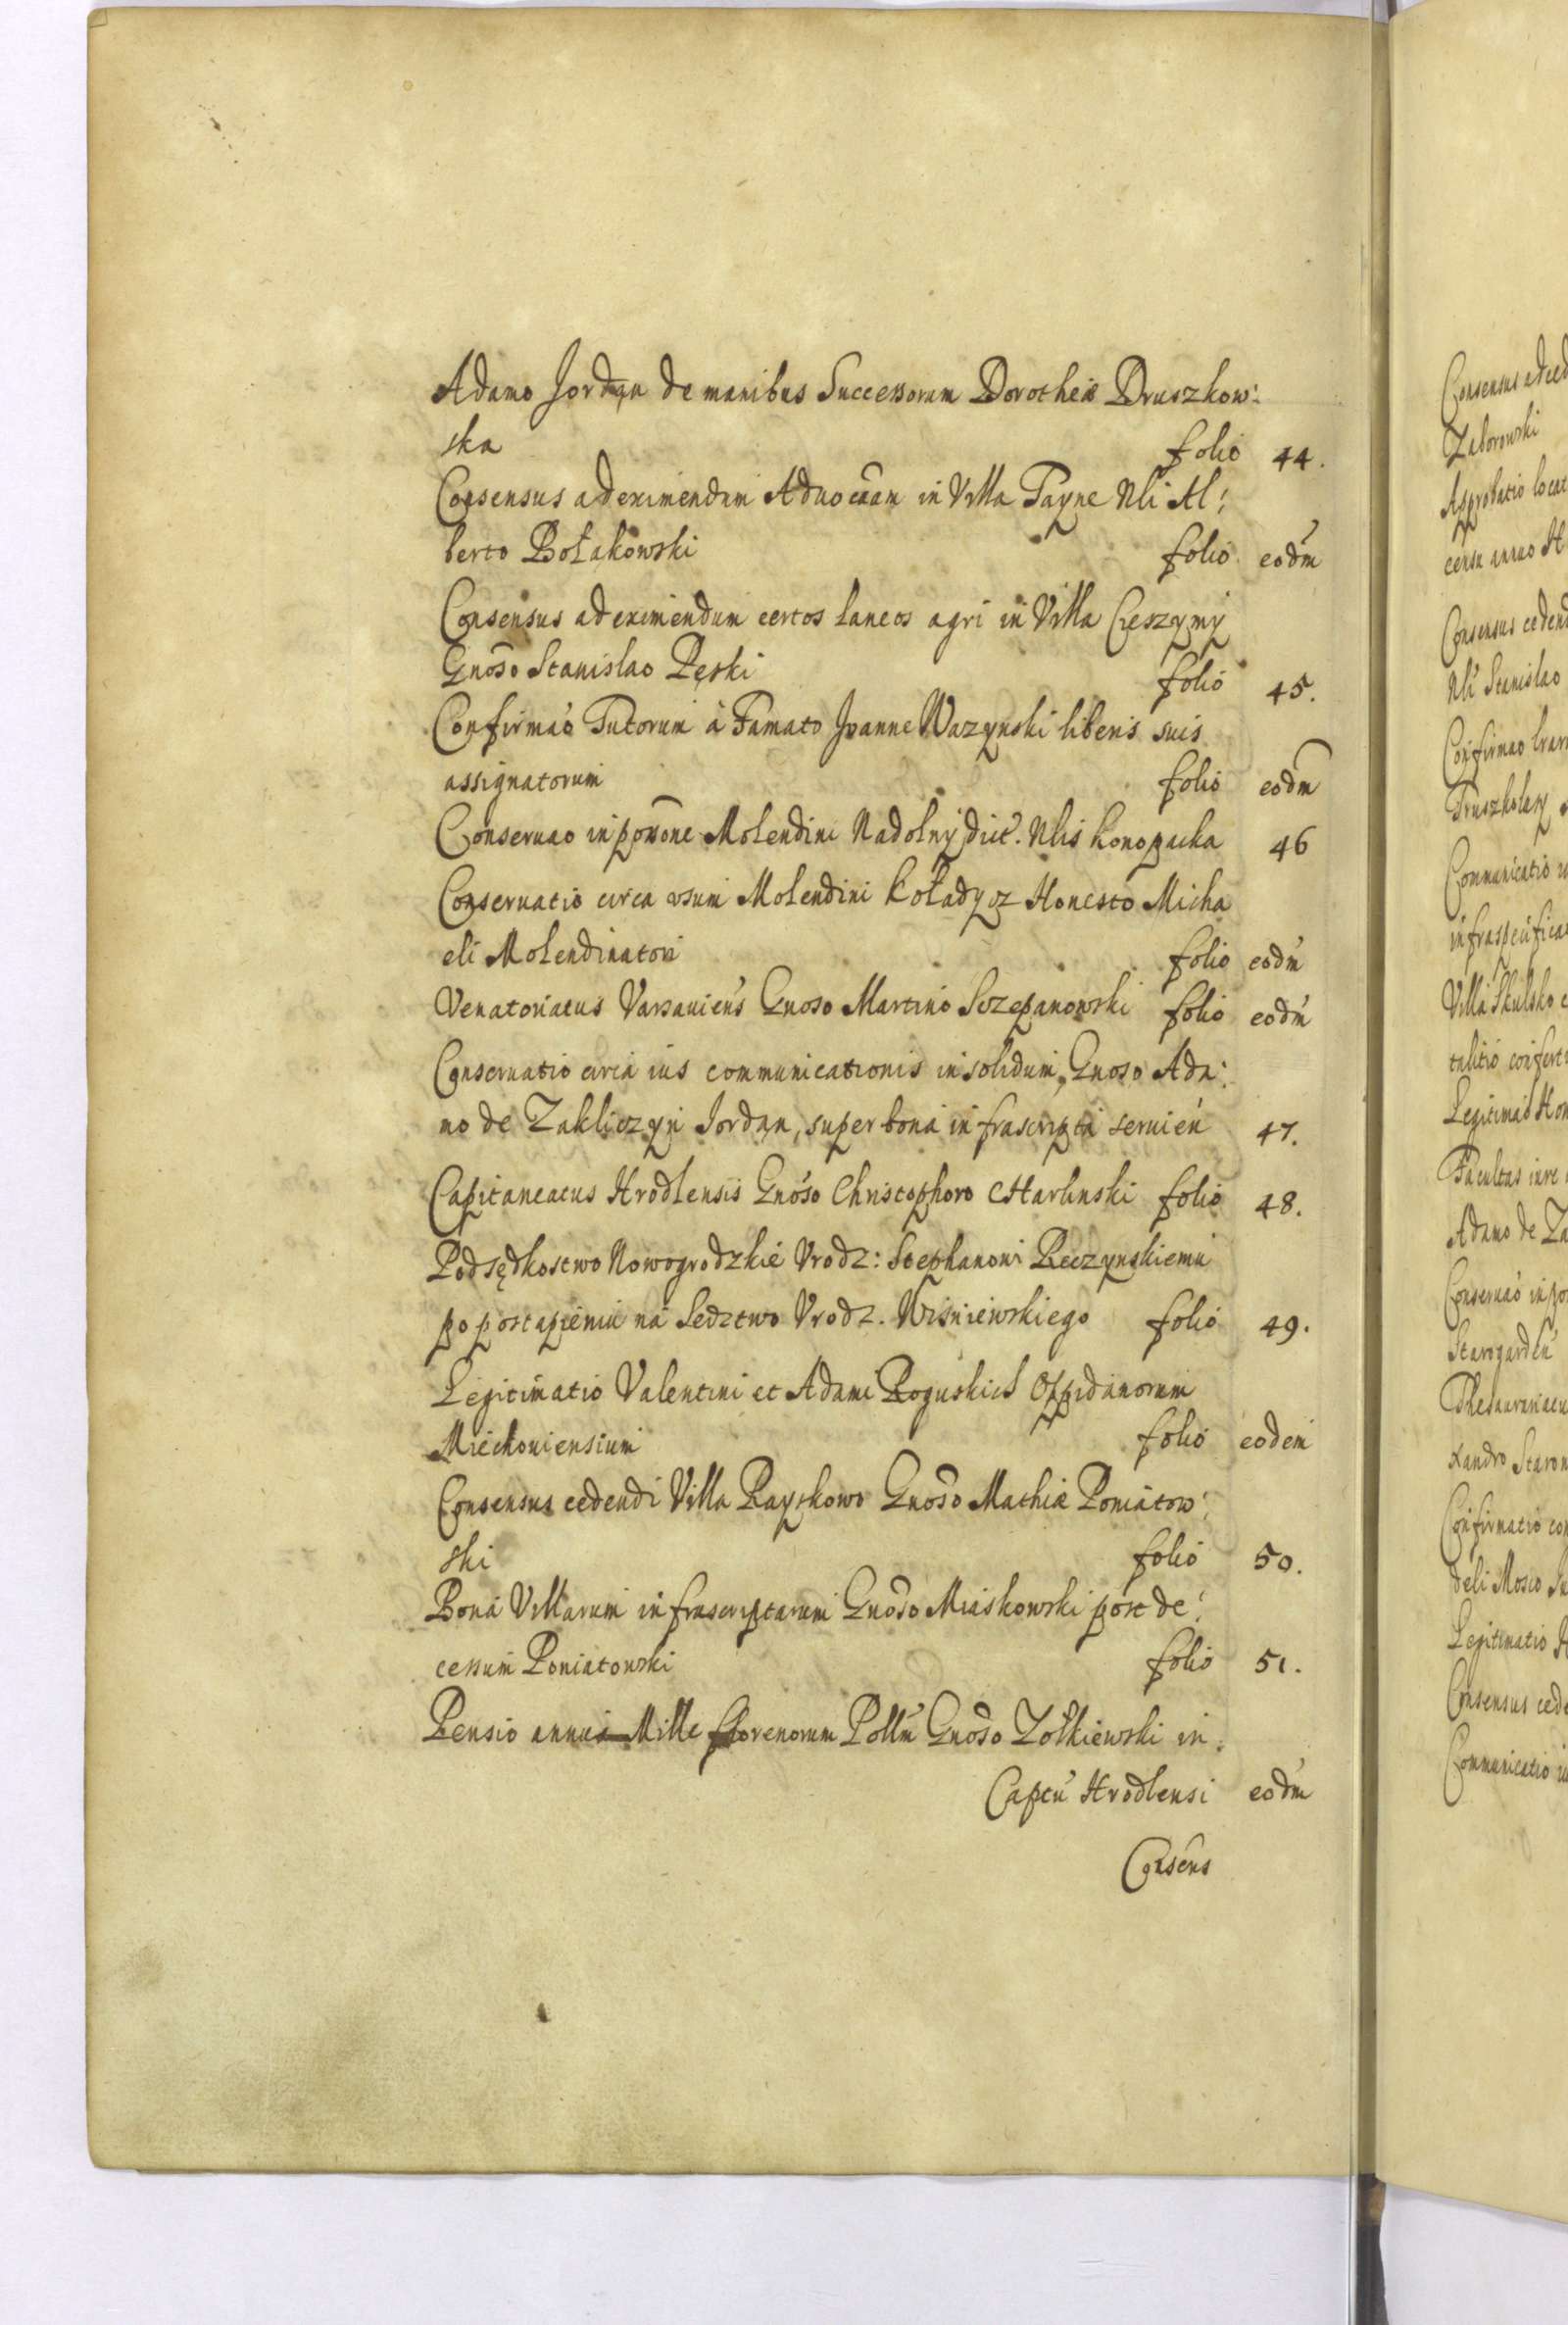 Adamo Jordan de manibus Successorum Dorotheæ Druszkow:
ska folio 44.
Consensus ad eximendum Aduocãam in Villa Tayne Nli Al:
berto Bołakowski folio eodm̃
Consensus ad eximendum certos laneos agri in Villa Cieszymy
Gnoso Stanislao Pęski folio 45.
Confirmao Tutorum à Famato Joanne Wazynski liberis suis
assignatorum folio eodm̃
Conseruao in poñone Molendini Nadolny dict. Nlis Konopacka 46
Conseruatio circa usum Molendini Koładycz Honesto Micha
eli Molendinatori folio eodm̃
Venatoriatus Varsauiens Gnoso Martino Szczepanowski folio eodm̃
Conseruatio circa ius communicationis in solidum, Gnoso Ada:
mo de Zakliczyn Jordan, super bona infrascripta seruien 47.
Capitaneatus Hrodlensis Gnoso Christophoro Charlinski folio 48.
Podsędkostwo Nowogrodzkie Vrodz: Stephanowi Reczynskiemu
po postąpieniu na Sedztwo Vrodz. Wisniewskiego folio 49.
Legitimatio Valentini et Adami Roguskich Oppidanorum
Miechouiensium folio eodem
Consensus cedendi Villa Rayskowo Gnoso Mathiæ Poniatow:
ski folio 50.
Bona Villarum infrascriptarum Gnoso Miaskowski post de:
cessum Poniatowski folio 51.
Pensio annua Mille florenorum Pollm̃ Gnoso Zołkiewski in
Captu Hrodlensi eodm̃
Consens
Consensus ad ced
Zaborowski
Approbatio locat
censu annuo
Consensus cedend
Nli Stanislao
Confirmao
Communicatio
Villa Skulsko
Legitimao Hon
Facultas
Adamo de Za
Conseruao in po
Confirmatio con
Legitimatio
Consensus cede
Communicatio